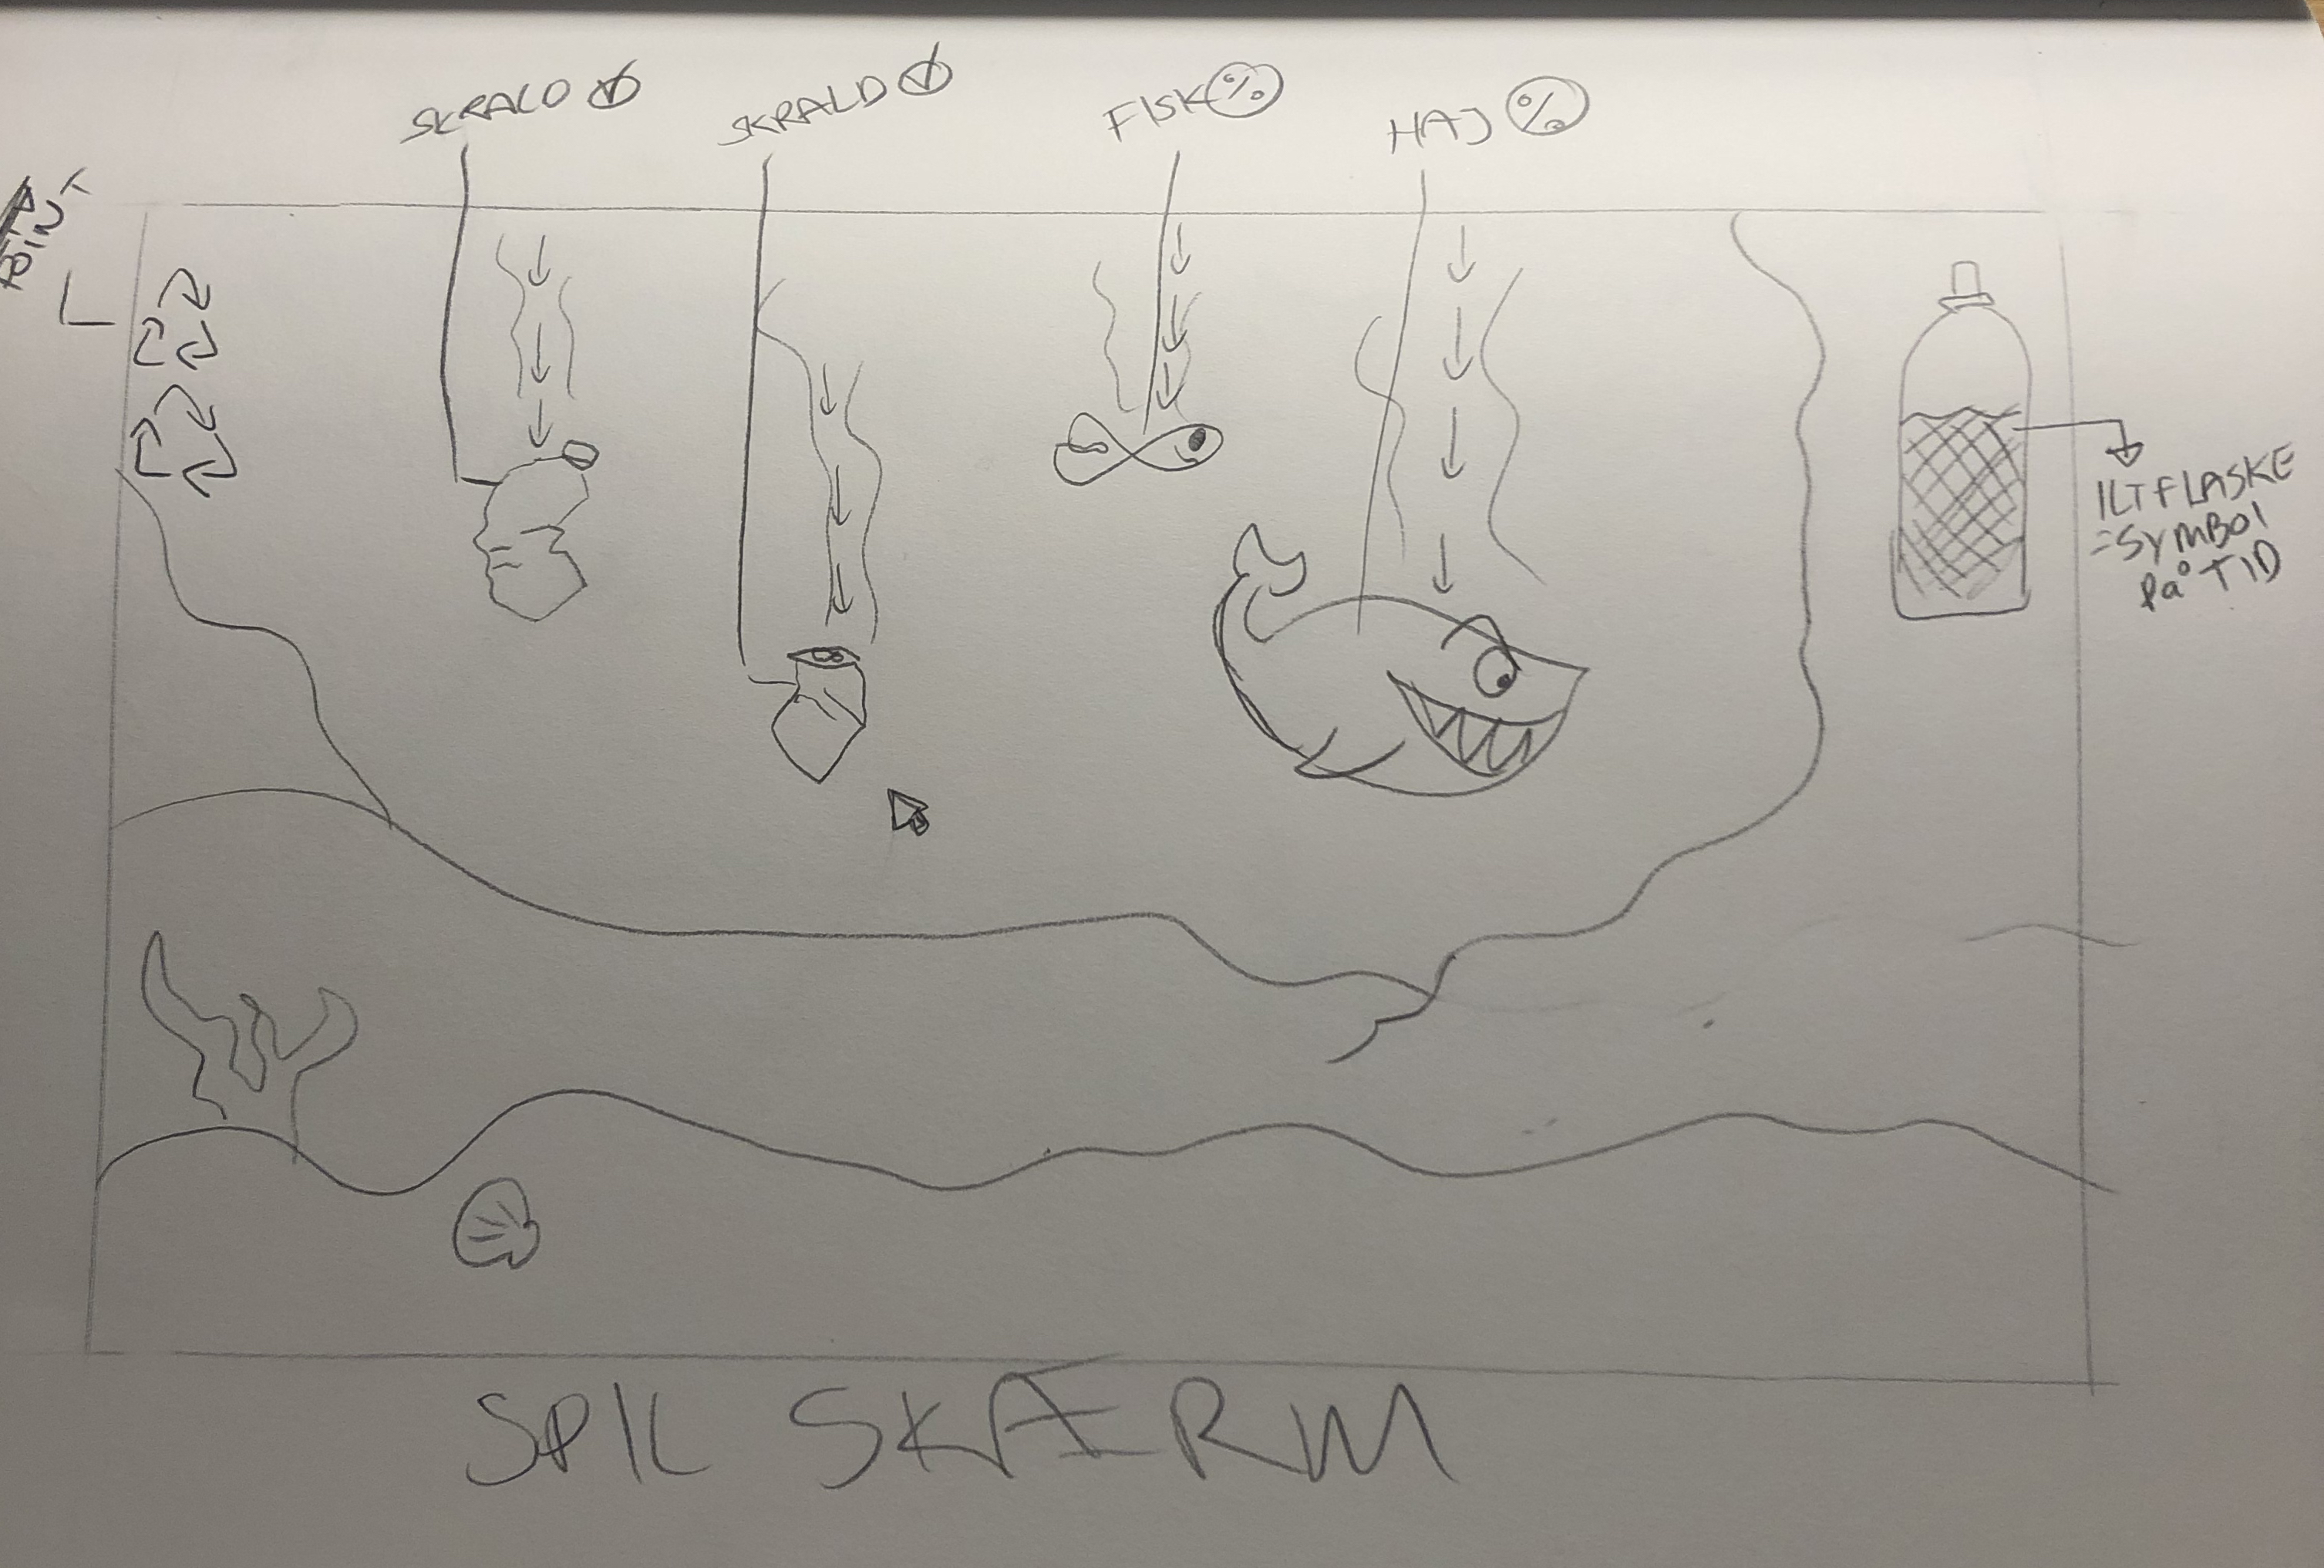 SKRALD
SKRALD
FISK %
HAJ %
POINT
ILTFLASKE
=SYMBOL
På TID
SPIL SKÆRM